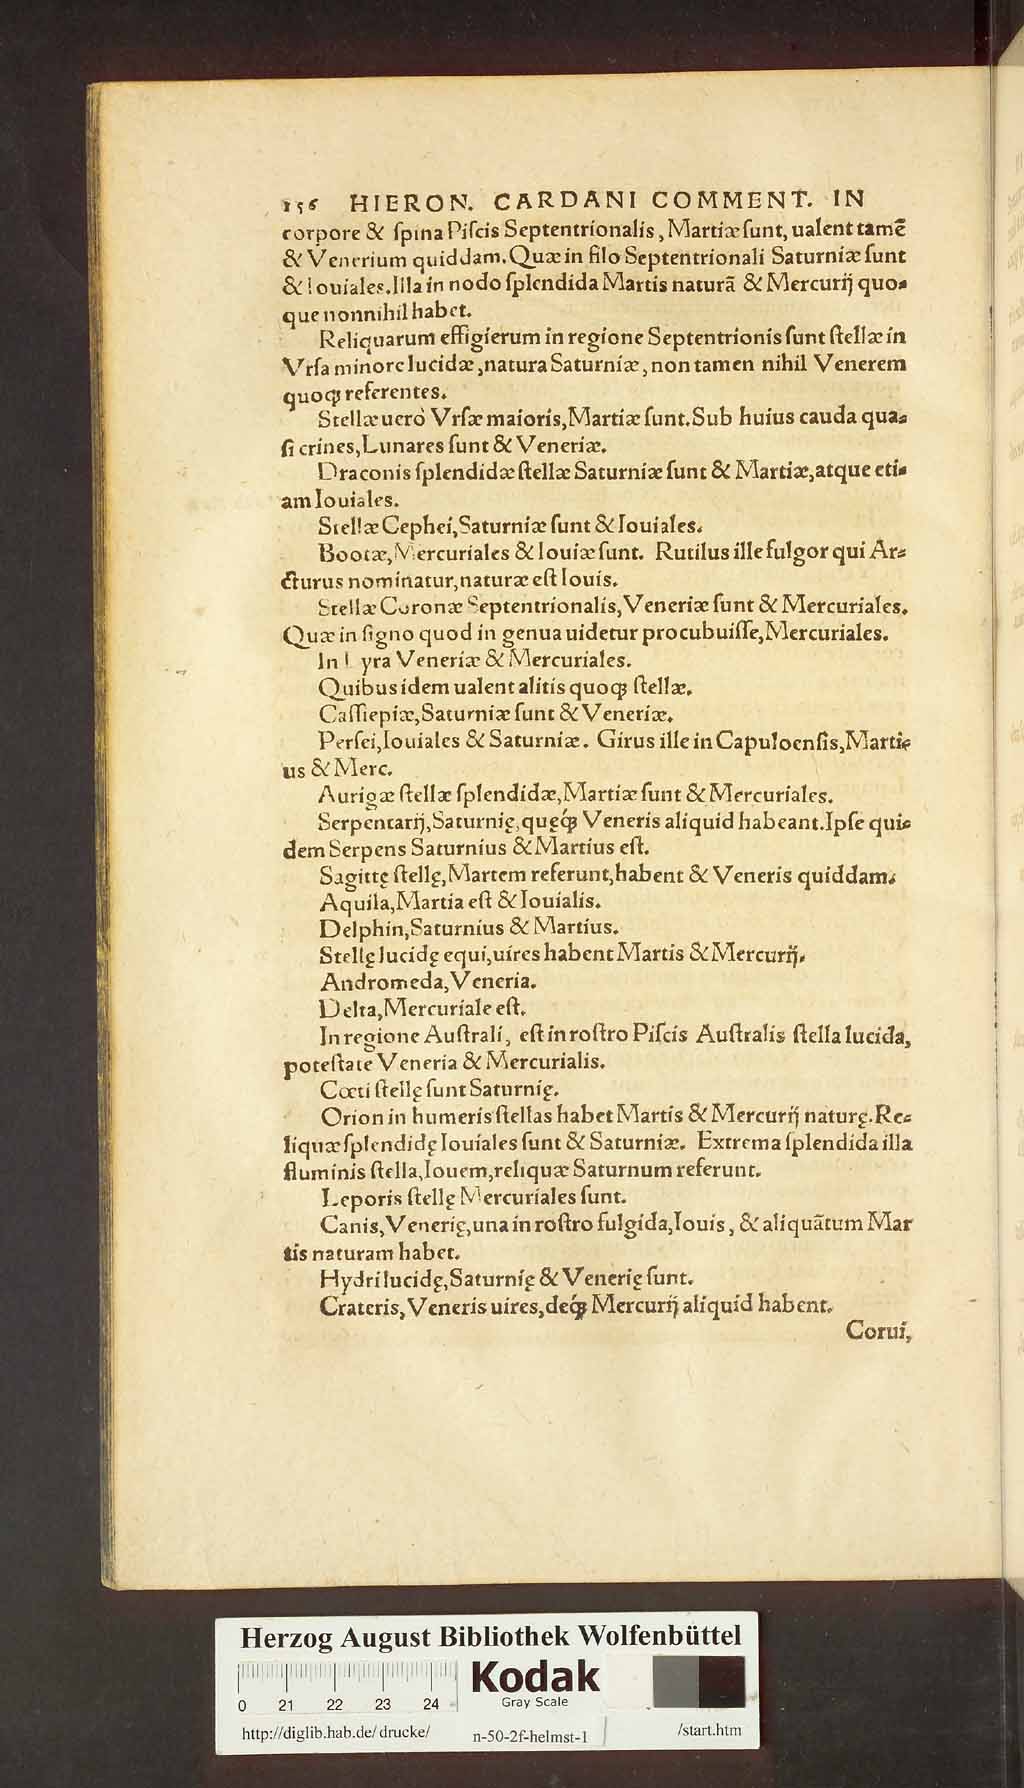 156 HIERON. CARDANI COMMENT. IN
corpore & ſpina Piſcis Septentrionalis, Martiæ ſunt, ualent tamē
& Venerium quiddam. Quæ in filo Septentrionali Saturniæ ſunt
& Iouiales. Illa in nodo ſplendida Martis naturā & Mercurij quo⸗
que nonnihil habet.
Reliquarum effigierum in regione Septentrionis ſunt ſtellæ in
Vrſa minore lucidæ, natura Saturniæ, non tamen nihil Venerem
quoqꝫ referentes.
Stellæ uerò Vrſæ maioris, Martiæ ſunt. Sub huius cauda qua⸗
ſi crines, Lunares ſunt & Veneriæ.
Draconis ſplendidæ ſtellæ Saturniæ ſunt & Martiæ, atque eti⸗
am Iouiales.
Stellæ Cephei, Saturniæ ſunt & Iouiales.
Bootæ, Mercuriales & Iouiæ ſunt. Rutilus ille fulgor qui Ar⸗
cturus nominatur, naturæ eſt Iouis.
Stellæ Coronæ Septentrionalis, Veneriæ ſunt & Mercuriales.
Quæ in ſigno quod in genua uidetur procubuiſſe, Mercuriales.
In Lyra Veneriæ & Mercuriales.
Quibus idem ualent alitis quoqꝫ ſtellæ.
Caſſiepiæ, Saturniæ ſunt & Veneriæ.
Perſei, Iouiales & Saturniæ. Girus ille in Capulo enſis, Marti⸗
us & Merc.
Aurigæ ſtellæ ſplendidæ, Martiæ ſunt & Mercuriales.
Serpentarij, Saturnię, quęq́ꝫ Veneris aliquid habeant. Ipſe qui⸗
dem Serpens Saturnius & Martius eſt.
Sagittę ſtellę, Martem referunt, habent & Veneris quiddam.
Aquila, Martia eſt & Iouialis.
Delphin, Saturnius & Martius.
Stellę lucidę equi, uires habent Martis & Mercurij.
Andromeda, Veneria.
Delta, Mercuriale eſt.
In regione Auſtrali, eſt in roſtro Piſcis Auſtralis ſtella lucida,
poteſtate Veneria & Mercurialis.
Cœti ſtellę ſunt Saturnię.
Orion in humeris ſtellas habet Martis & Mercurij naturę. Re⸗
liquæ ſplendidę Iouiales ſunt & Saturniæ. Extrema ſplendida illa
fluminis ſtella, Iouem, reliquæ Saturnum referunt.
Leporis ſtellę Mercuriales ſunt.
Canis, Venerię, una in roſtro fulgida, Iouis, & aliquātum Mar
tis naturam habet.
Hydri lucidę, Saturnię & Venerię ſunt.
Crateris, Veneris uires, deq́ꝫ Mercurij aliquid habent.
Corui,
Herzog August Bibliothek Wolfenbüttel
Kodak
Gray Scale
0 21 22 23 24
http://diglib.hab.de/drucke/ n-50-2f-helmst-1 /start.htm